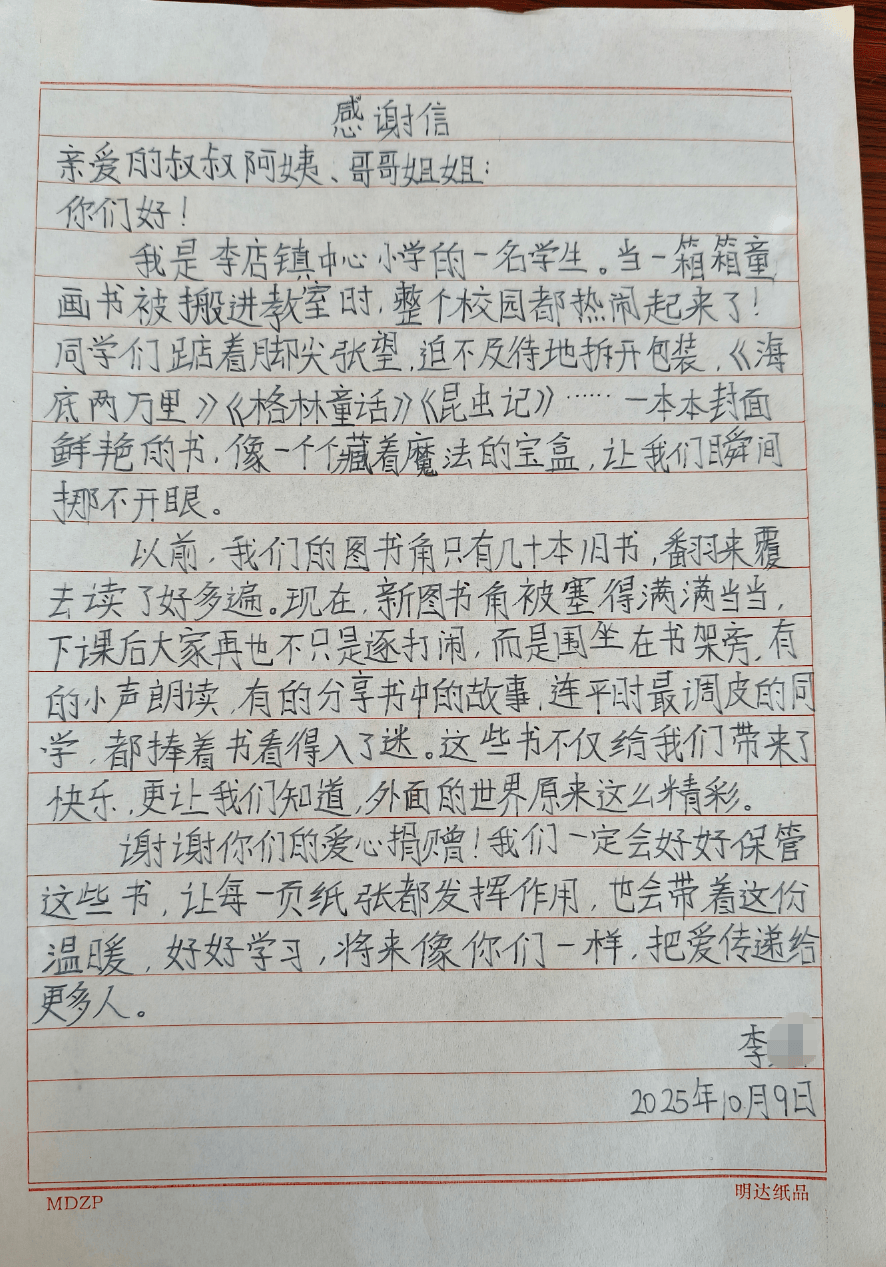 感谢信
亲爱的叔叔阿姨、哥哥姐姐:
你们好!
我是李店镇中心小学的一名学生。当一箱箱童
画书被搬进教室时,整个校园都热闹起来了!
同学们踮着脚尖张望,迫不及待地拆开包装,《海
底两万里》《格林童话》《昆虫记》……一本本封面
鲜艳的书,像一个个藏着魔法的宝盒,让我们瞬间
挪不开眼。
以前,我们的图书角只有几十本旧书,翻来覆
去读了好多遍。现在,新图书角被塞得满满当当,
下课后大家再也不只是逐打闹,而是围坐在书架旁,有
的小声朗读,有的分享书中的故事,连平时最调皮的同
学,都捧着书看得入了迷。这些书不仅给我们带来了
快乐,更让我们知道,外面的世界原来这么精彩。
谢谢你们的爱心捐赠!我们一定会好好保管
这些书,让每一页纸张都发挥作用,也会带着这份
温暖,好好学习,将来像你们一样,把爱传递给
更多人。
李
2025年10月9日
MDZP 明达纸品